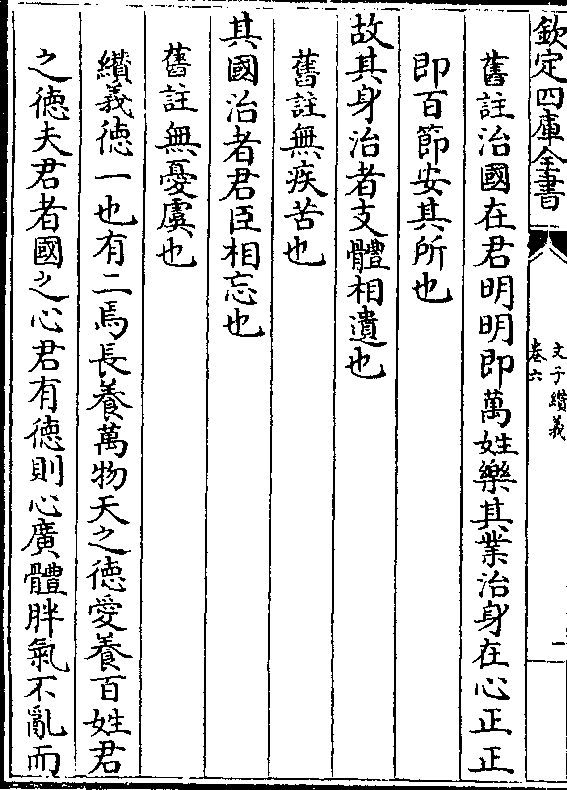 欽定四庫全書
文子纘義
卷六
一
舊註治國在君明明即萬姓樂其業治身在心正正
即百節安其所也
故其身治者支體相遺也
舊註無疾苦也
其國治者君臣相忘也
舊註無憂虞也
纉義徳一也有二焉長養萬物天之徳愛養百姓君
之徳夫君者國之心君有徳則心廣體胖氣不亂而